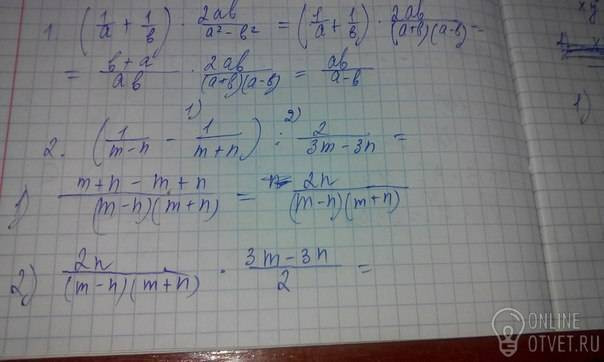 1. (1/a + 1/b) · 2ab/(a² - b²) = (1/a + 1/b) · 2ab/((a+b)(a-b)) =
= (b + a)/(ab) · 2ab/((a+b)(a-b)) = ab/(a-b)
1) 2)
2. (1/(m-n) - 1/(m+n)) : 2/(3m-3n) =
1) (m+n - m+n)/((m-n)(m+n)) = 2n/((m-n)(m+n))
2) 2n/((m-n)(m+n)) · (3m-3n)/2 =
xy
1)
ONLINE
OTVET.RU